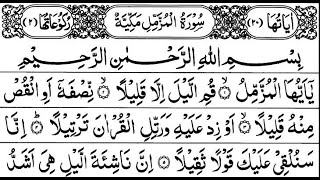 اٰيَاتُهَا (٢٠) سُوْرَةُ الْمُزَّمِّلِ مَكِّيَّةٌ رُكُوْعَاتُهَا (٢)
بِسْمِ اللهِ الرَّحْمٰنِ الرَّحِيْمِ
يٰۤاَيُّهَا الْمُزَّمِّلُ ۙ قُمِ الَّيْلَ اِلَّا قَلِيْلًا ۙ نِّصْفَهٗۤ اَوِ انْقُصْ
مِنْهُ قَلِيْلًا ۙ اَوْ زِدْ عَلَيْهِ وَرَتِّلِ الْقُرْاٰنَ تَرْتِيْلًا ؕ اِنَّا
سَنُلْقِيْ عَلَيْكَ قَوْلًا ثَقِيْلًا اِنَّ نَاشِئَةَ الَّيْلِ هِيَ اَشَدُّ